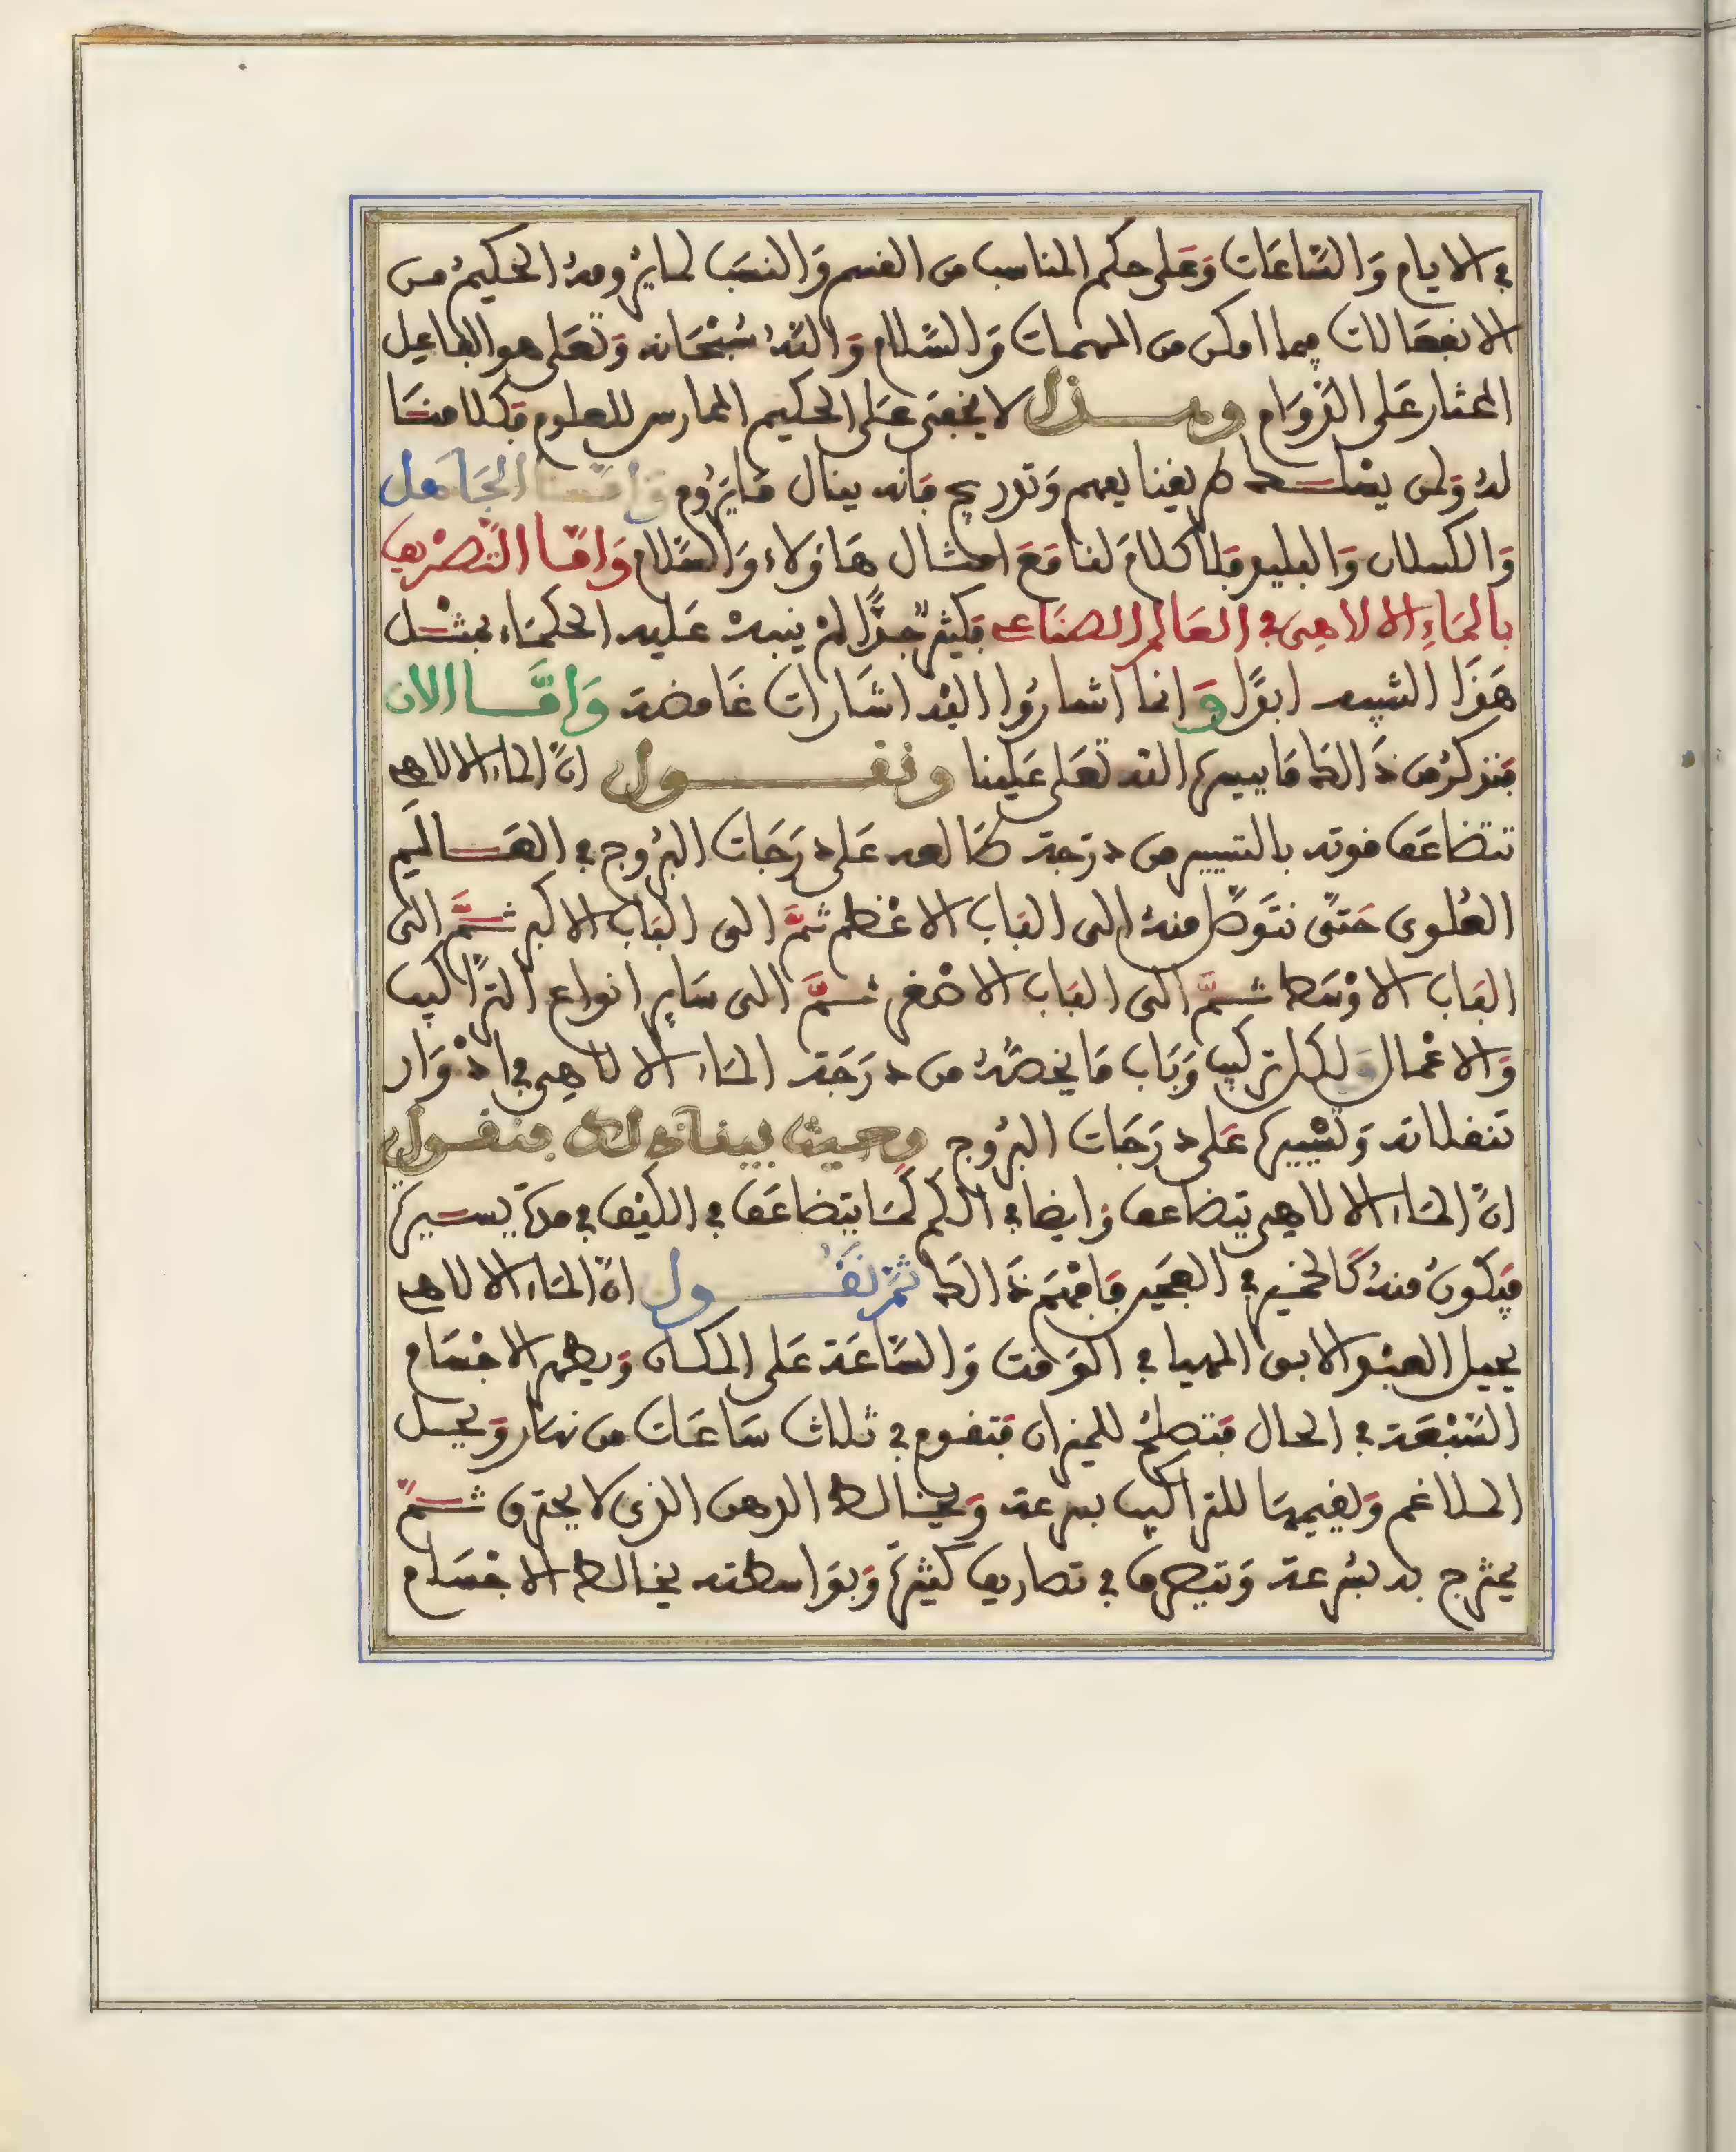 في الايام وَالسَّاعَات وَعَلى حكم المناسب من القسم وَالنسَب لما يرُومهُ الحكيمُ من
الانفعَالات فيما امكن من المهمات وَالسَّلام وَاللّهُ سُبْحَانه وَتعَلى هو الفاعِل
المختار عَلى الدّوَام وهــذا لا يخفى عَلى الحكيم الممارس للعلوم فكلامنَا
لهُ وَلمن يسْلــك طريقنا يفهم وَتدريج فانه ينال مَا يَرُوم وَامّــا الجَاهل
وَالكسلان وَالبليد فلا كلامَ لنا مَعَ امثــال هَاؤلاء وَالسَّلام وَامّــا التَّصْريف
بالمَاءِ الالاهِي في العَالم الصنَاعي فكثير جدًّا لمْ ينبهْ عَليه الحكمَاء بمثــل
هَذَا التنبيه ابدًا وَانما اشارُوا اليْه اشَارات غَامضة وَامَّــا الان
فنذكرُ من ذَالك مَا ييسره اللّه تعَلى عَلينا ونقــــول انَّ الماء الالاهي
تتضاعَف قوته بالتسيير من درَجة طالعه عَلى درَجَات البرُوج في العَــالَم
العُلوى حَتى نتَوصّل منهُ الى البَاب الاعْظم ثمَّ الى البَاب الاكبر ثــمَّ الى
البَاب الاوْسَط ثــمَّ الى البَاب الاصْغر ثــمَّ الى سَاير انواع الترَاكيب
وَالاعْمال وَلكل تركيب وَبَاب مَا يخصّهُ من درَجَة المَاء الالاهي في ادْوَار
تنقلاته وَتسْييره عَلى درَجَات البرُوج وحيث بينا ذلك فنقــول
انَّ المَاء الالاهي يتضاعف وَايضا في الكم كمَا يتضاعَف في الكيْف في مدة يســيرة
فيكونُ منهُ كَالخمير في العجَير فافهَم ذَالك ثمّ نقُــــول انّ المَاء الالاهي
يحيل العبْد الابق المهيا في الوَقت وَالسَّاعَة عَلى المكان وَيطهر الاجْسَام
السَّبْعَة في الحال فتصلحُ للميزان فتقوم في ثلاث سَاعَات من نهَار وَيحــل
الملاغم وَيقيمهَا للتراكيب بسرعة وَيخالط الدهن الذى لا يحترق ثــمّ
يمتزج به بسُرعة وَيتصرف في تصاريف كثيرة وَبوَاسطته يخالط الاجْسَام